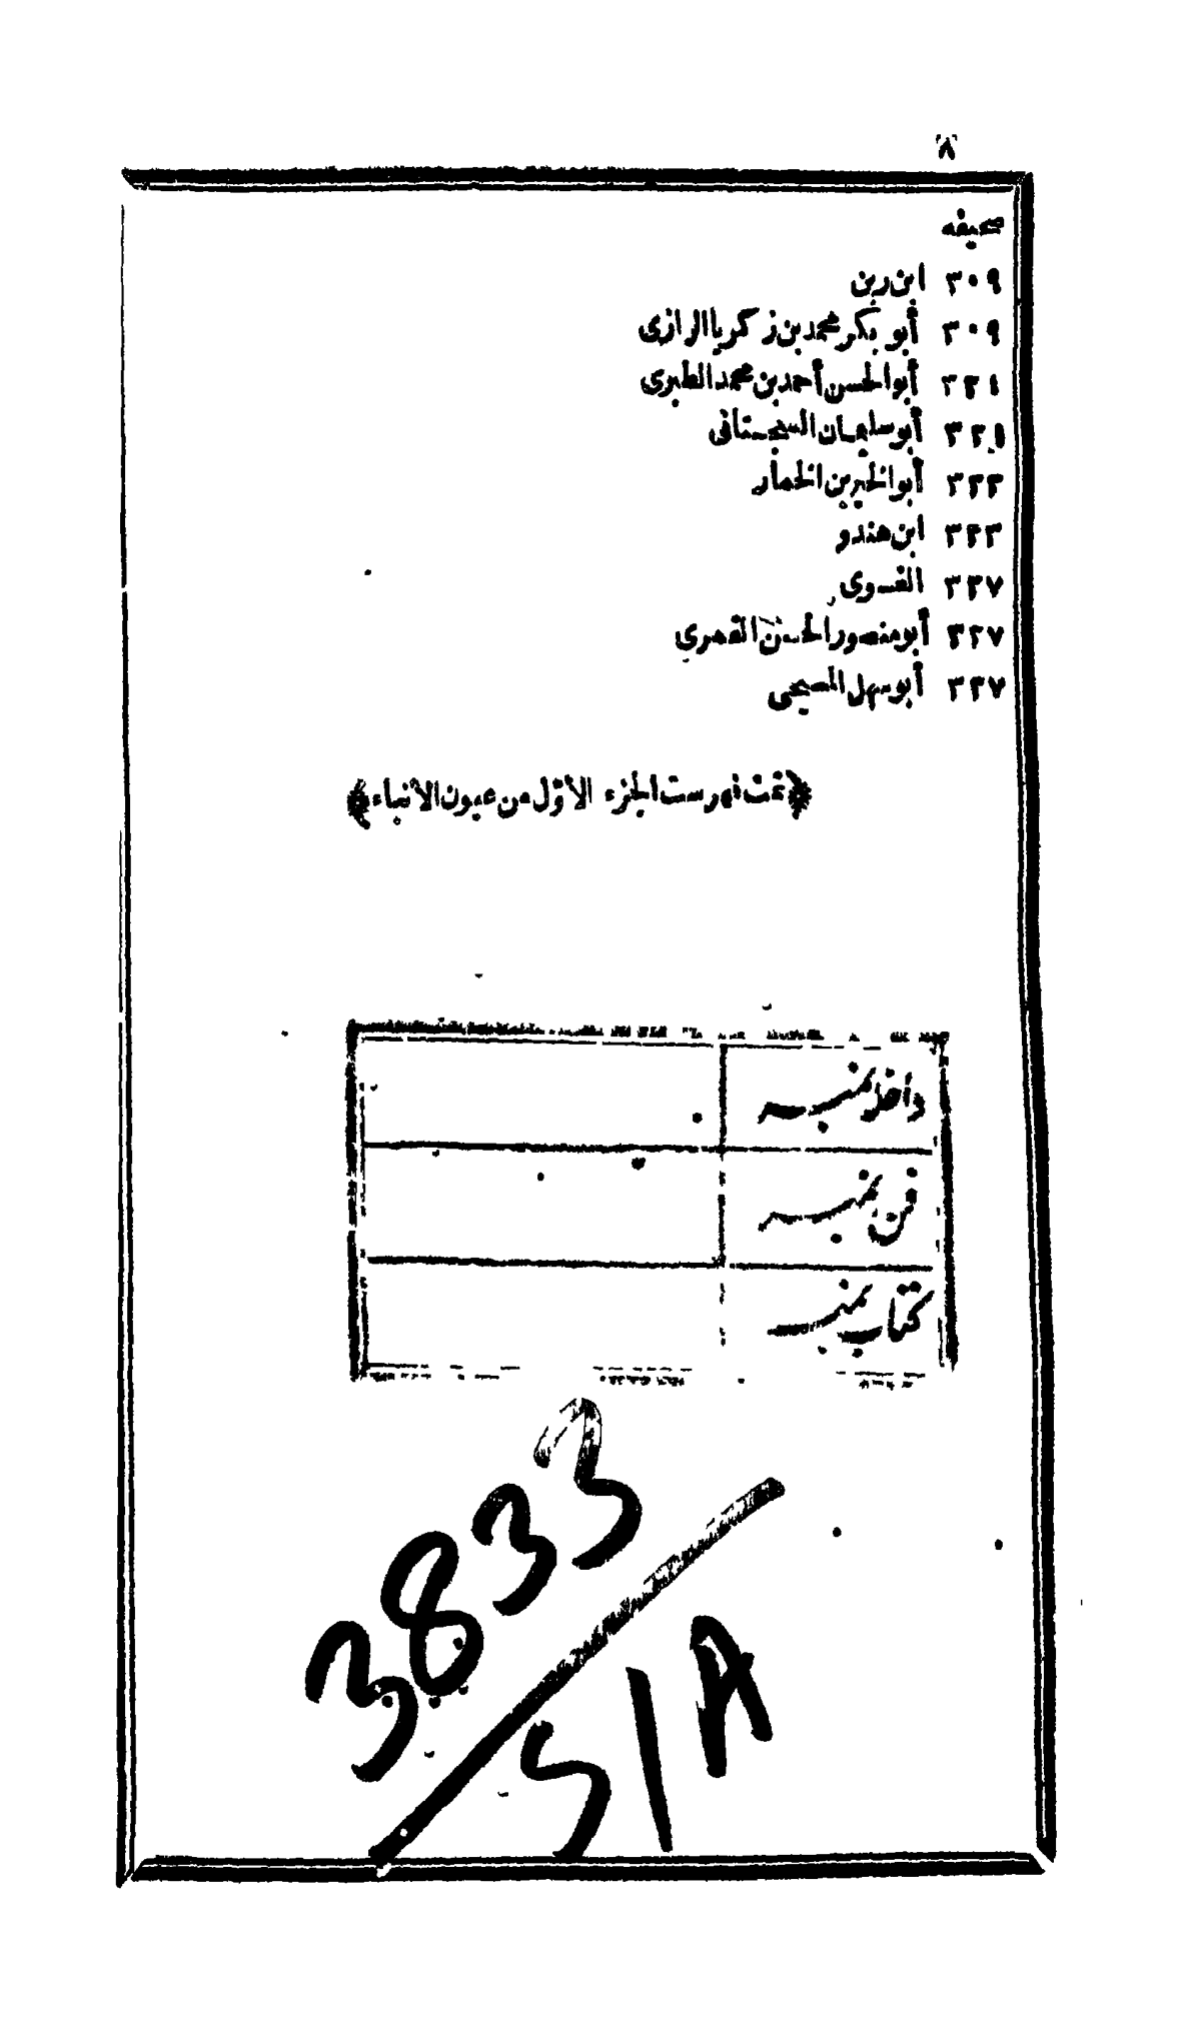 ٨
صحيفه
٣٠٩ ابن ربن
٣٠٩ أبو بكر محمد بن زكريا الرازى
٣٢١ أبو الحسن أحمد بن محمد الطبرى
٣٢١ أبو سليمان السجستانى
٣٢٢ أبو الخير بن الخمار
٣٢٣ ابن هندو
٣٢٧ الفسوى
٣٢٧ أبو منصور الحسن القمرى
٣٢٧ أبو سهل المسيحى
﴿تمت فهرست الجزء الأوّل من عيون الأنباء﴾
داخله نمبر
فن نمبر
كتاب نمبر
3833
51A